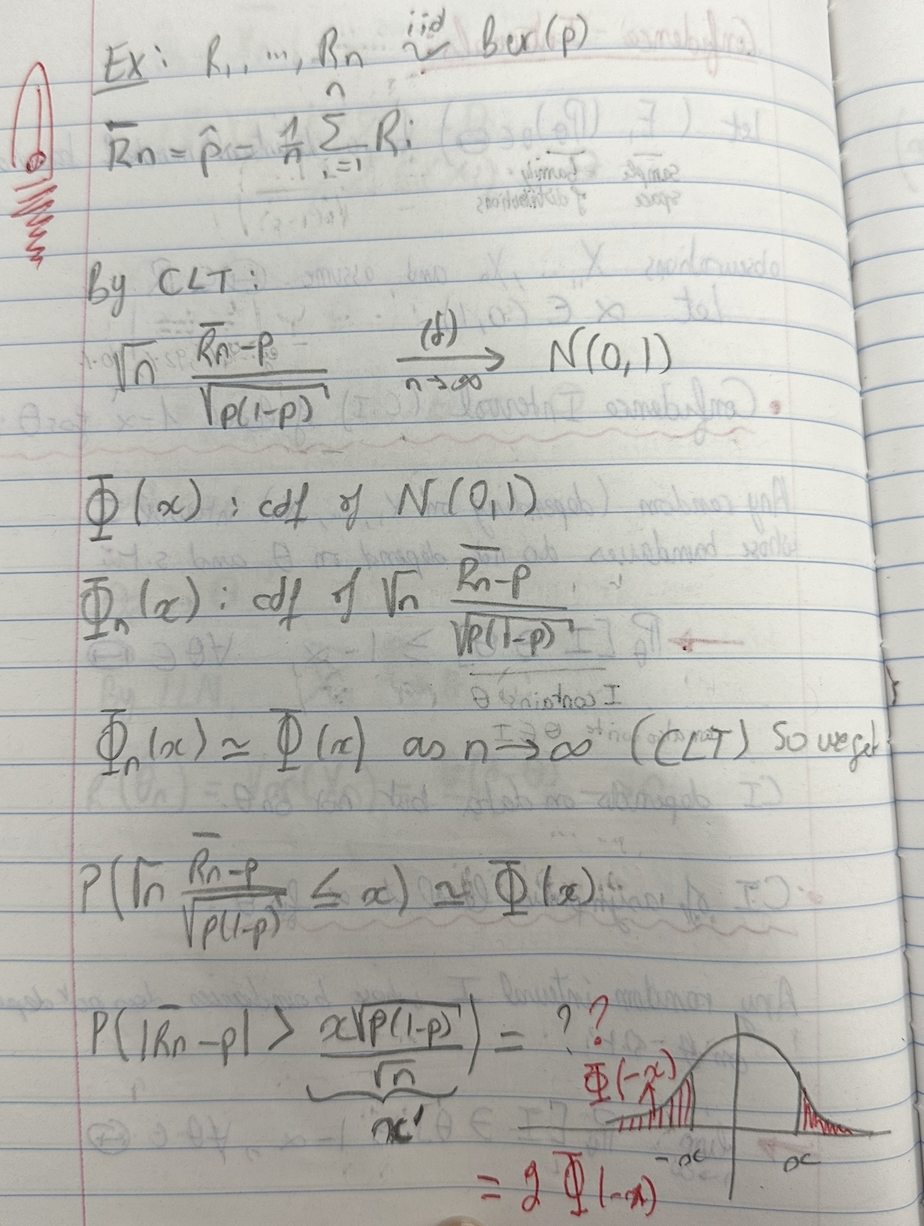 Ex: R₁, ..., Rn iid~ Ber(p)
R̄n = p̂ = 1/n Σ_{i=1}^{n} Ri
By CLT:
√n (R̄n-p)/√(p(1-p)) (d)→ n→∞ N(0,1)
Φ(x): cdf of N(0,1)
Φn(x): cdf of √n (R̄n-p)/√(p(1-p))
Φn(x) ≃ Φ(x) as n→∞ (CLT) So we get
P(√n (R̄n-p)/√(p(1-p)) ≤ x) ≃ Φ(x)
P(|R̄n-p| > x√(p(1-p))/√n) = ??
x'
Φ(-x)
-x x
= 2Φ(-x)